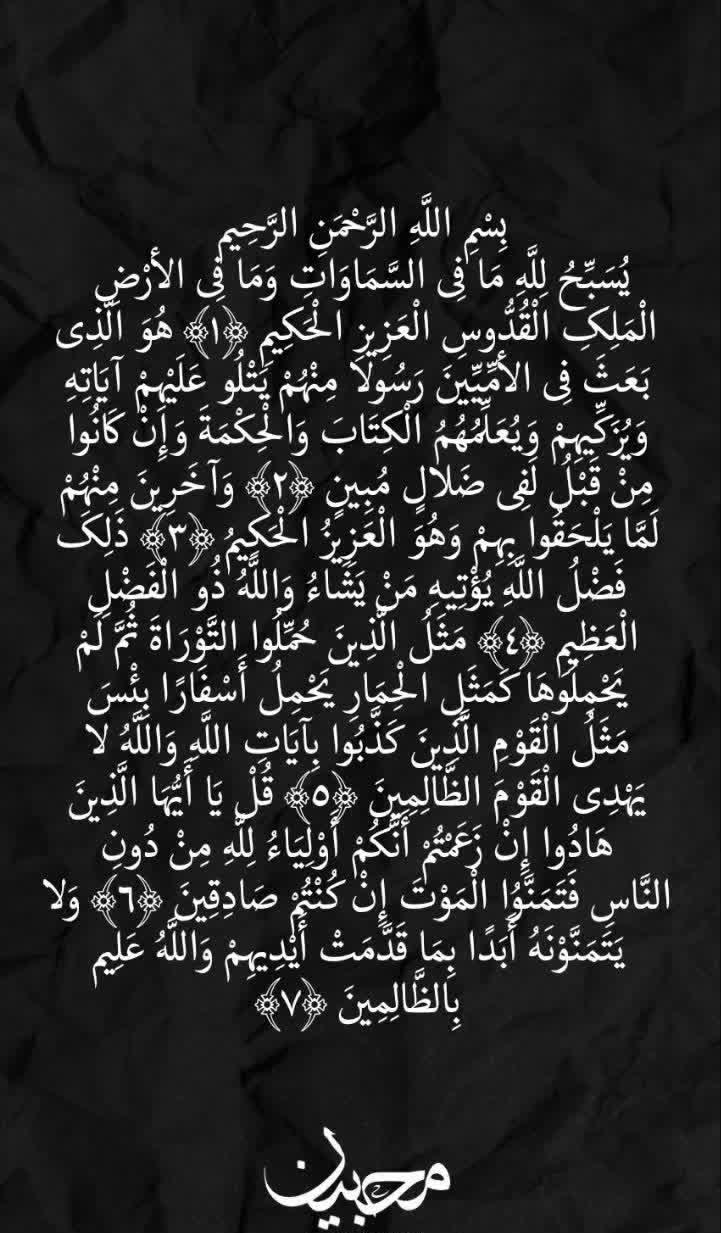 بِسْمِ اللَّهِ الرَّحْمَنِ الرَّحِيمِ
يُسَبِّحُ لِلَّهِ مَا فِی السَّمَاوَاتِ وَمَا فِی الأرْضِ
الْمَلِکِ الْقُدُّوسِ الْعَزِيزِ الْحَكِيمِ ﴿١﴾ هُوَ الَّذِی
بَعَثَ فِی الأمِّيِّينَ رَسُولا مِنْهُمْ يَتْلُو عَلَيْهِمْ آيَاتِهِ
وَيُزَكِّيهِمْ وَيُعَلِّمُهُمُ الْكِتَابَ وَالْحِكْمَةَ وَإِنْ كَانُوا
مِنْ قَبْلُ لَفِی ضَلالٍ مُبِينٍ ﴿٢﴾ وَآخَرِينَ مِنْهُمْ
لَمَّا يَلْحَقُوا بِهِمْ وَهُوَ الْعَزِيزُ الْحَكِيمُ ﴿٣﴾ ذَلِکَ
فَضْلُ اللَّهِ يُؤْتِيهِ مَنْ يَشَاءُ وَاللَّهُ ذُو الْفَضْلِ
الْعَظِيمِ ﴿٤﴾ مَثَلُ الَّذِينَ حُمِّلُوا التَّوْرَاةَ ثُمَّ لَمْ
يَحْمِلُوهَا كَمَثَلِ الْحِمَارِ يَحْمِلُ أَسْفَارًا بِئْسَ
مَثَلُ الْقَوْمِ الَّذِينَ كَذَّبُوا بِآيَاتِ اللَّهِ وَاللَّهُ لا
يَهْدِی الْقَوْمَ الظَّالِمِينَ ﴿٥﴾ قُلْ يَا أَيُّهَا الَّذِينَ
هَادُوا إِنْ زَعَمْتُمْ أَنَّكُمْ أَوْلِيَاءُ لِلَّهِ مِنْ دُونِ
النَّاسِ فَتَمَنَّوُا الْمَوْتَ إِنْ كُنْتُمْ صَادِقِينَ ﴿٦﴾ وَلا
يَتَمَنَّوْنَهُ أَبَدًا بِمَا قَدَّمَتْ أَيْدِيهِمْ وَاللَّهُ عَلِيمٌ
بِالظَّالِمِينَ ﴿٧﴾
محبین